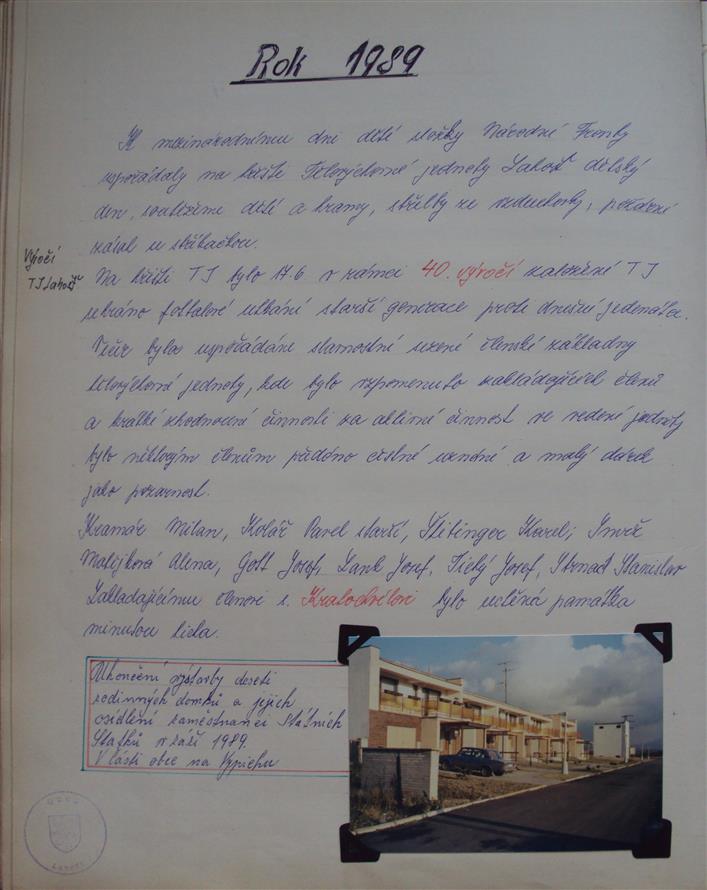 Rok 1989
K mezinárodnímu dni dětí složky Národní Fronty
uspořádaly na hřišti Tělovýchovné jednoty Lahošť dětský
den, soutěžemi dětí a hramy, střelby ze vzduchovky, požární
zásah se stříkačkou.
Výročí
TJ Lahošť
Na hřišti TJ bylo 17.6 v rámci 40. výročí založené TJ
sehráno fotbalové utkání starší generace proti dnešní jedenáctce.
Večer byla uspořádána slavnostní členské základny
tělovýchovné jednoty, kde bylo vzpomenuto zakládajících členů
a krátké zhodnocené činnosti za aktivné činnost ve vedené jednoty
bylo některým členům předáno čestné uznáné a malý dárek
jako pozornost.
Kramár Milan, Kolář Pavel starší, Karel,
Matějková Alena, Gott Josef, Lank Josef, Tichý Josef, Strnad Stanislav
Zakladajícímu členovi s. Kratochvílovi bylo uctěná památka
minutou ticha.
Ukončení výstavby deseti
rodinných domků a jejich
osídlení zaměstnanci Státních
Statků v září 1989.
V části obce na Výpichu